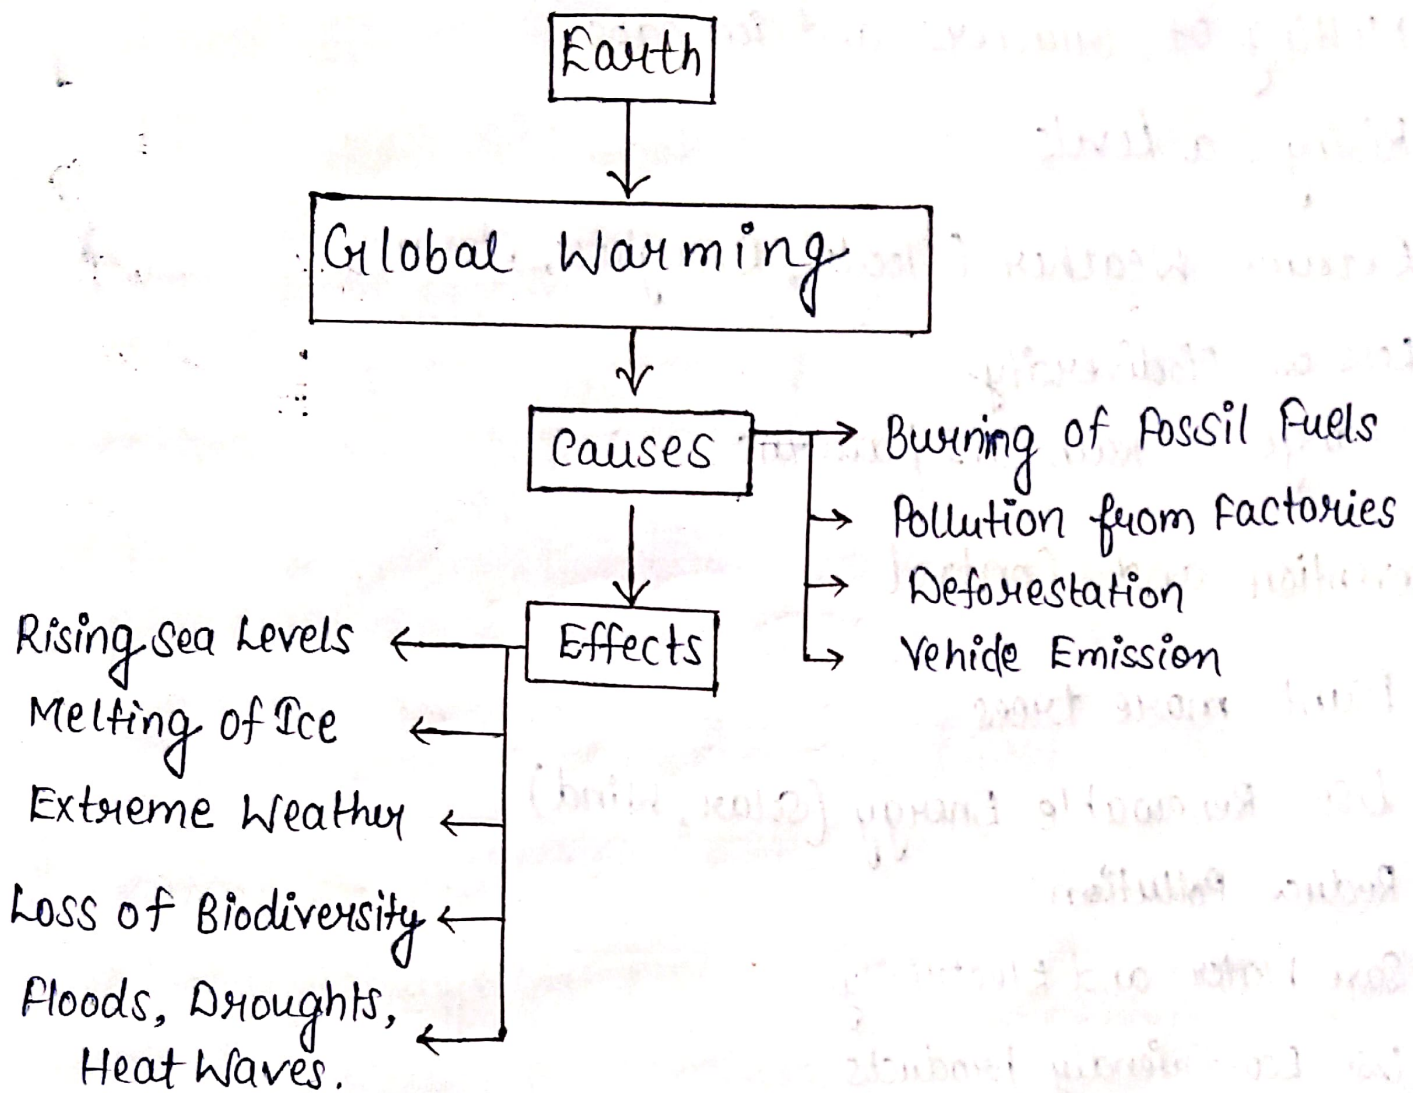 Earth
Global Warming
Causes
Burning of Fossil Fuels
Pollution from Factories
Deforestation
Vehicle Emission
Effects
Rising Sea Levels
Melting of Ice
Extreme Weather
Loss of Biodiversity
Floods, Droughts,
Heat Waves.